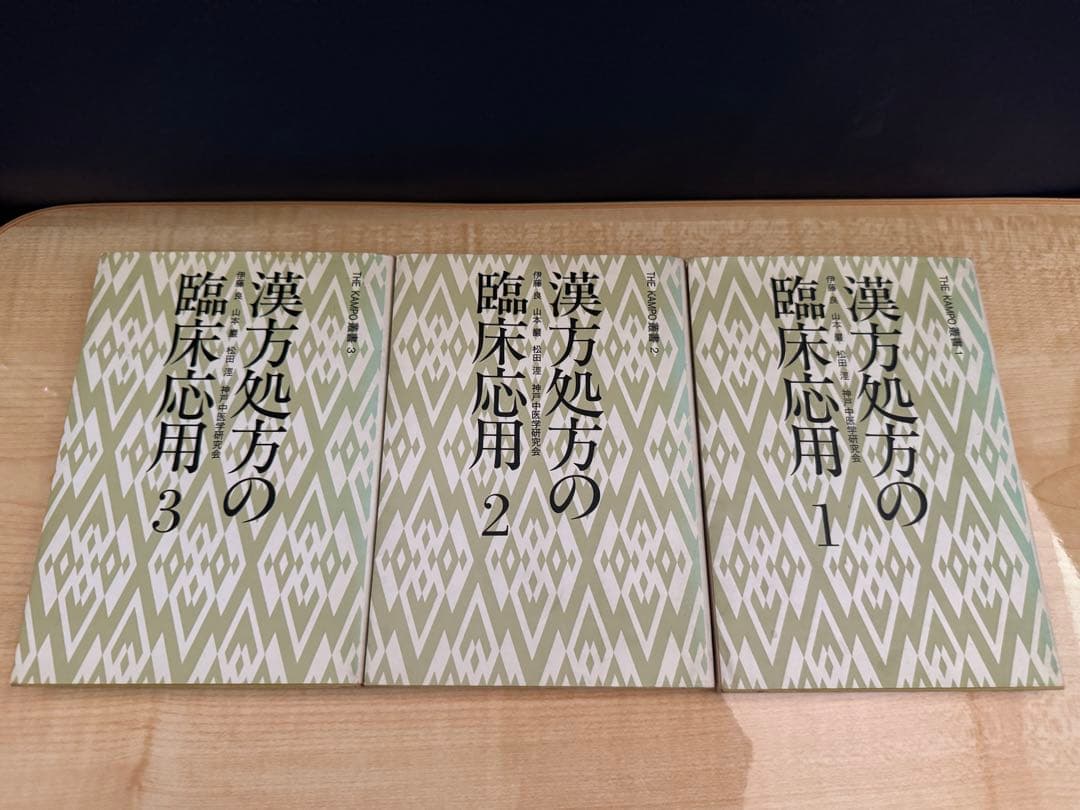 THE KAMPO叢書 3
漢方処方の
伊藤 良 山本 巌 松田 涇 神戸中医学研究会
臨床応用 3
THE KAMPO叢書 2
漢方処方の
伊藤 良 山本 巌 松田 涇 神戸中医学研究会
臨床応用 2
THE KAMPO叢書 1
漢方処方の
伊藤 良 山本 巌 松田 涇 神戸中医学研究会
臨床応用 1